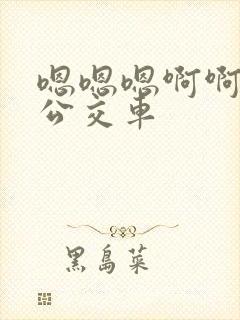 嗯嗯嗯啊啊
公交车
黑岛菜